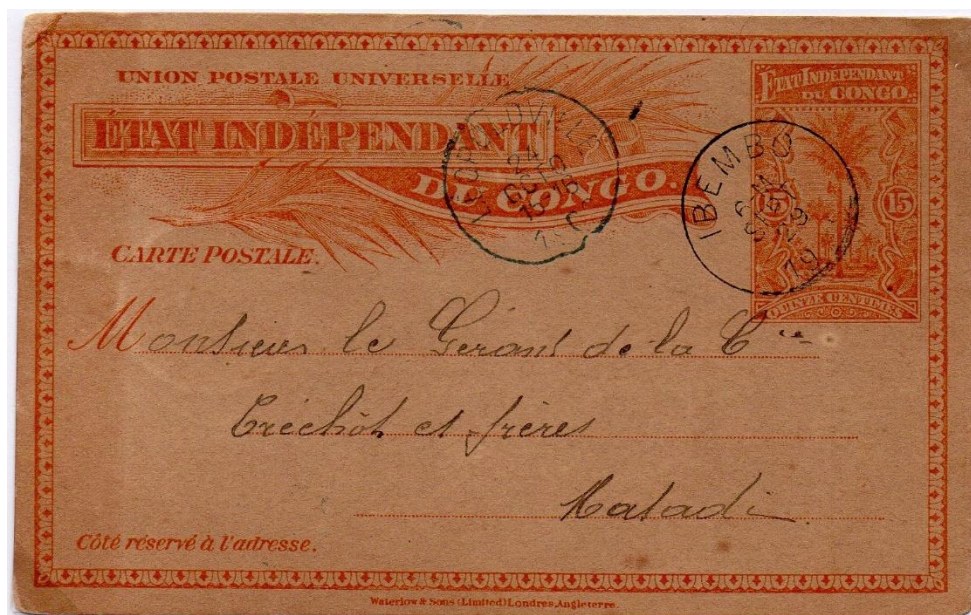 UNION POSTALE UNIVERSELLE
ÉTAT INDÉPENDANT
DU CONGO.
CARTE POSTALE.
"ÉTAT INDÉPENDANT
DU CONGO"
15 15
QUINZE CENTIMES
LEOPOLDVILLE
24
OCT
IBEMBO
Monsieur le Gérant de la Cie
Tréchôt et frères
Matadi
Côté réservé à l'adresse.
Waterlow & Sons (Limited) Londres, Angleterre.